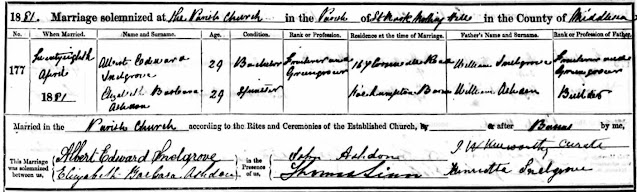 1881. Marriage solemnized at The Parish Church in the Parish of St Mark Notting Hill in the County of Middlesex
No. When Married. Name and Surname. Age. Condition. Rank or Profession. Residence at the time of Marriage. Father's Name and Surname. Rank or Profession of Father.
177 Twenty eighth April 1881 Albert Edward Snelgrove 29 Bachelor Fruiterer and Greengrocer 167 Road William Snelgrove Fruiterer and Greengrocer
Elizabeth Barbara Ashdon 29 Spinster William Ashdon Builder
Married in the Parish Church according to the Rites and Ceremonies of the Established Church, by or after Banns by me,
This Marriage was solemnized between us, Albert Edward Snelgrove Elizabeth Barbara Ashdon in the Presence of us, John Ashdon Thomas Curate
Henrietta Snelgrove